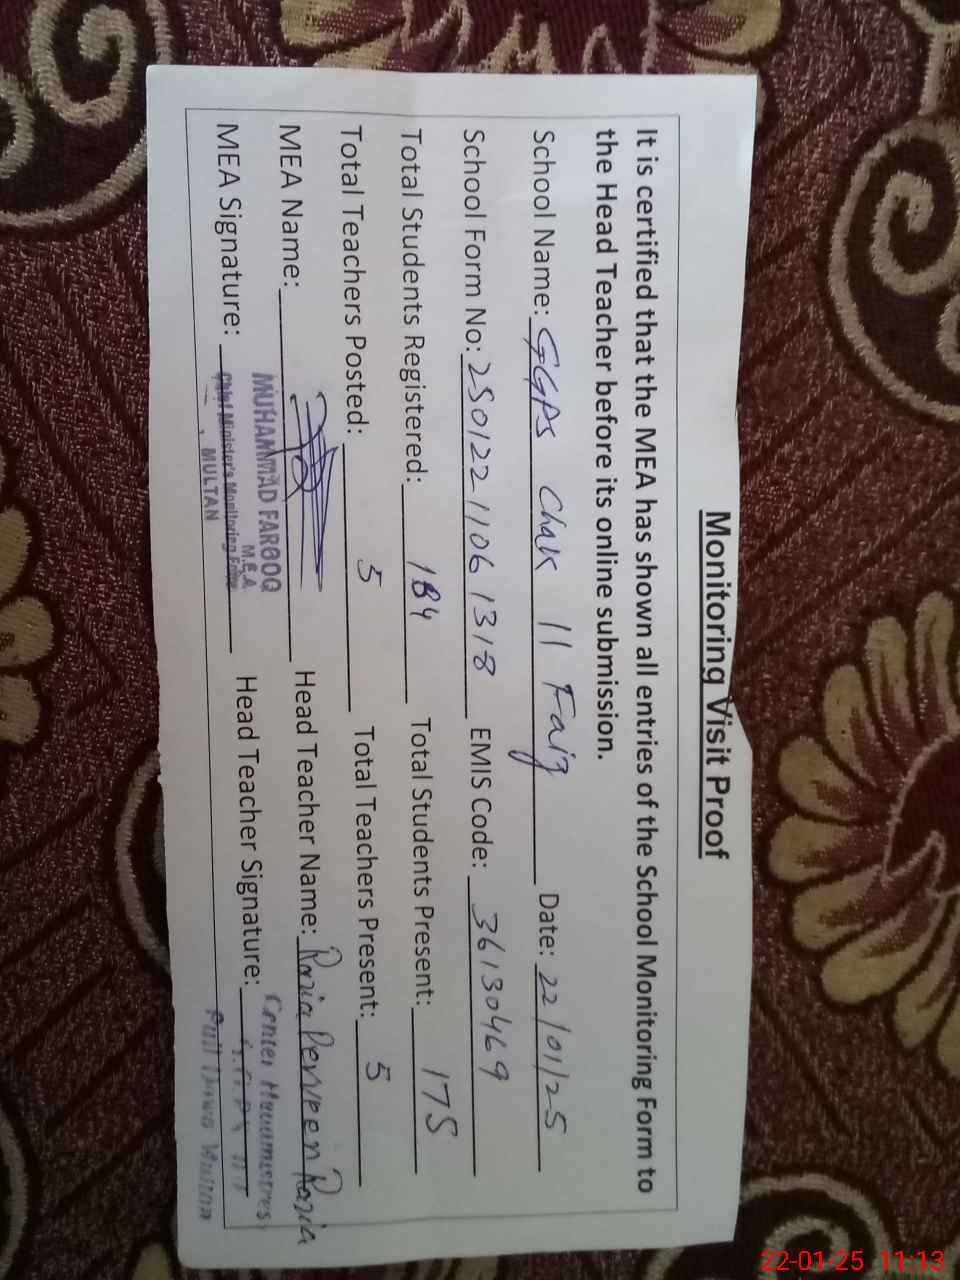 Monitoring Visit Proof
It is certified that the MEA has shown all entries of the School Monitoring Form to
the Head Teacher before its online submission.
School Name: GGPS Chak 11 Faiz Date: 22/01/25
School Form No: 25012211061318 EMIS Code: 36130469
Total Students Registered: 184 Total Students Present: 175
Total Teachers Posted: 5 Total Teachers Present: 5
MEA Name: Head Teacher Name: Razia Perveen Razia
MUHAMMAD FAROOQ
M.E.A
MEA Signature: Head Teacher Signature:
Chief Minister's Monitoring Force
MULTAN
22-01-25 11:13